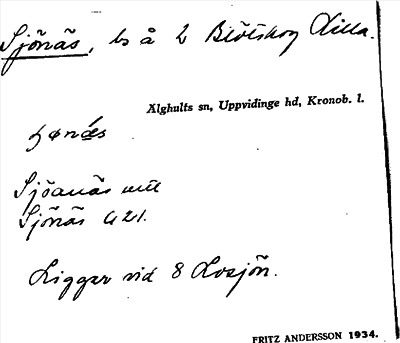 Sjönäs, ls å 2 Blötskog Lilla.
Älghults sn, Uppvidinge hd, Kronob. l.
Sjöanäs
Sjönäs G 21.
Ligger vid 8 Losjön.
FRITZ ANDERSSON 1934.